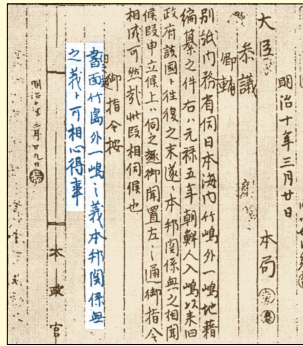 明治十年三月廿日
大臣 本局
参議
卿輔
別紙内務省伺日本海内竹嶋外一嶋地籍
編纂之件右ハ元禄五年朝鮮人入嶋以来旧
政府該國ト往復之末遂ニ本邦関係無之相聞
候段申立候上ハ伺之趣御聞置左之通御指令
相成可然哉此段相伺候也
御指令按
書面竹島外一嶋之義本邦関係無
之義ト可相心得事
明治十年三月廿九日
本政官